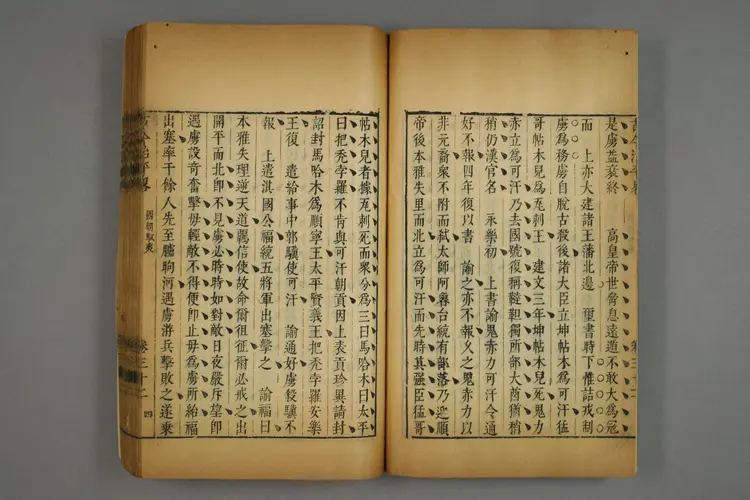 是虜益衰終 高皇帝世脅息遠遁不敢大為寇
而 上亦大建諸王藩北邊 璽書時下惟詰戎制
虜為務虜自脫古殺後諸大臣立坤帖木為可汗猛
哥帖木兒為瓦剌王 建文三年坤帖木兒死鬼力
赤立為可汗乃去國號復稱韃靼獨所部大酋猶稍
稍仍漢官名 永樂初 上書諭鬼赤力可汗令通
好不報四年復以書 諭之亦不報久之鬼赤力以
非元裔衆不附而弒太師阿魯台統有部落乃迎順
帝後本雅失里而北立為可汗而先時其強臣猛哥
帖木兒者據瓦剌死而衆分為三曰馬哈木曰太平
曰把禿孛羅不肯與可汗朝貢因上表貢珍異請封
詔封馬哈木為順寧王太平賢義王把禿孛羅安樂
王復 遣給事中郭驥使可汗 諭通好虜殺驥不
報 上遣淇國公福統五將軍出塞擊之 諭福曰
本雅失理逆天道羈信使故命爾徂征爾必戒之出
開平而北即不見虜必時時如對敵日夜嚴斥望即
遇虜設奇奮擊毋輕敵不得便即止毋為虜所紿福
出塞率千餘人先至臚朐河遇虜游兵擊敗之遂乘
卷三十二